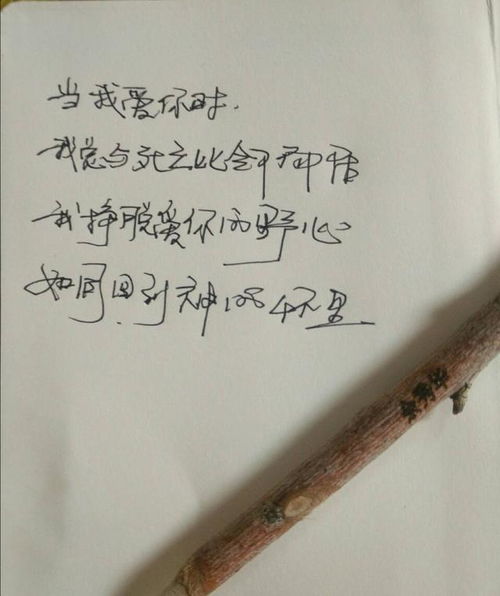 当我爱你时.
我总与死亡比邻
我挣脱爱你的野心
如同回到神的怀里
余秀华